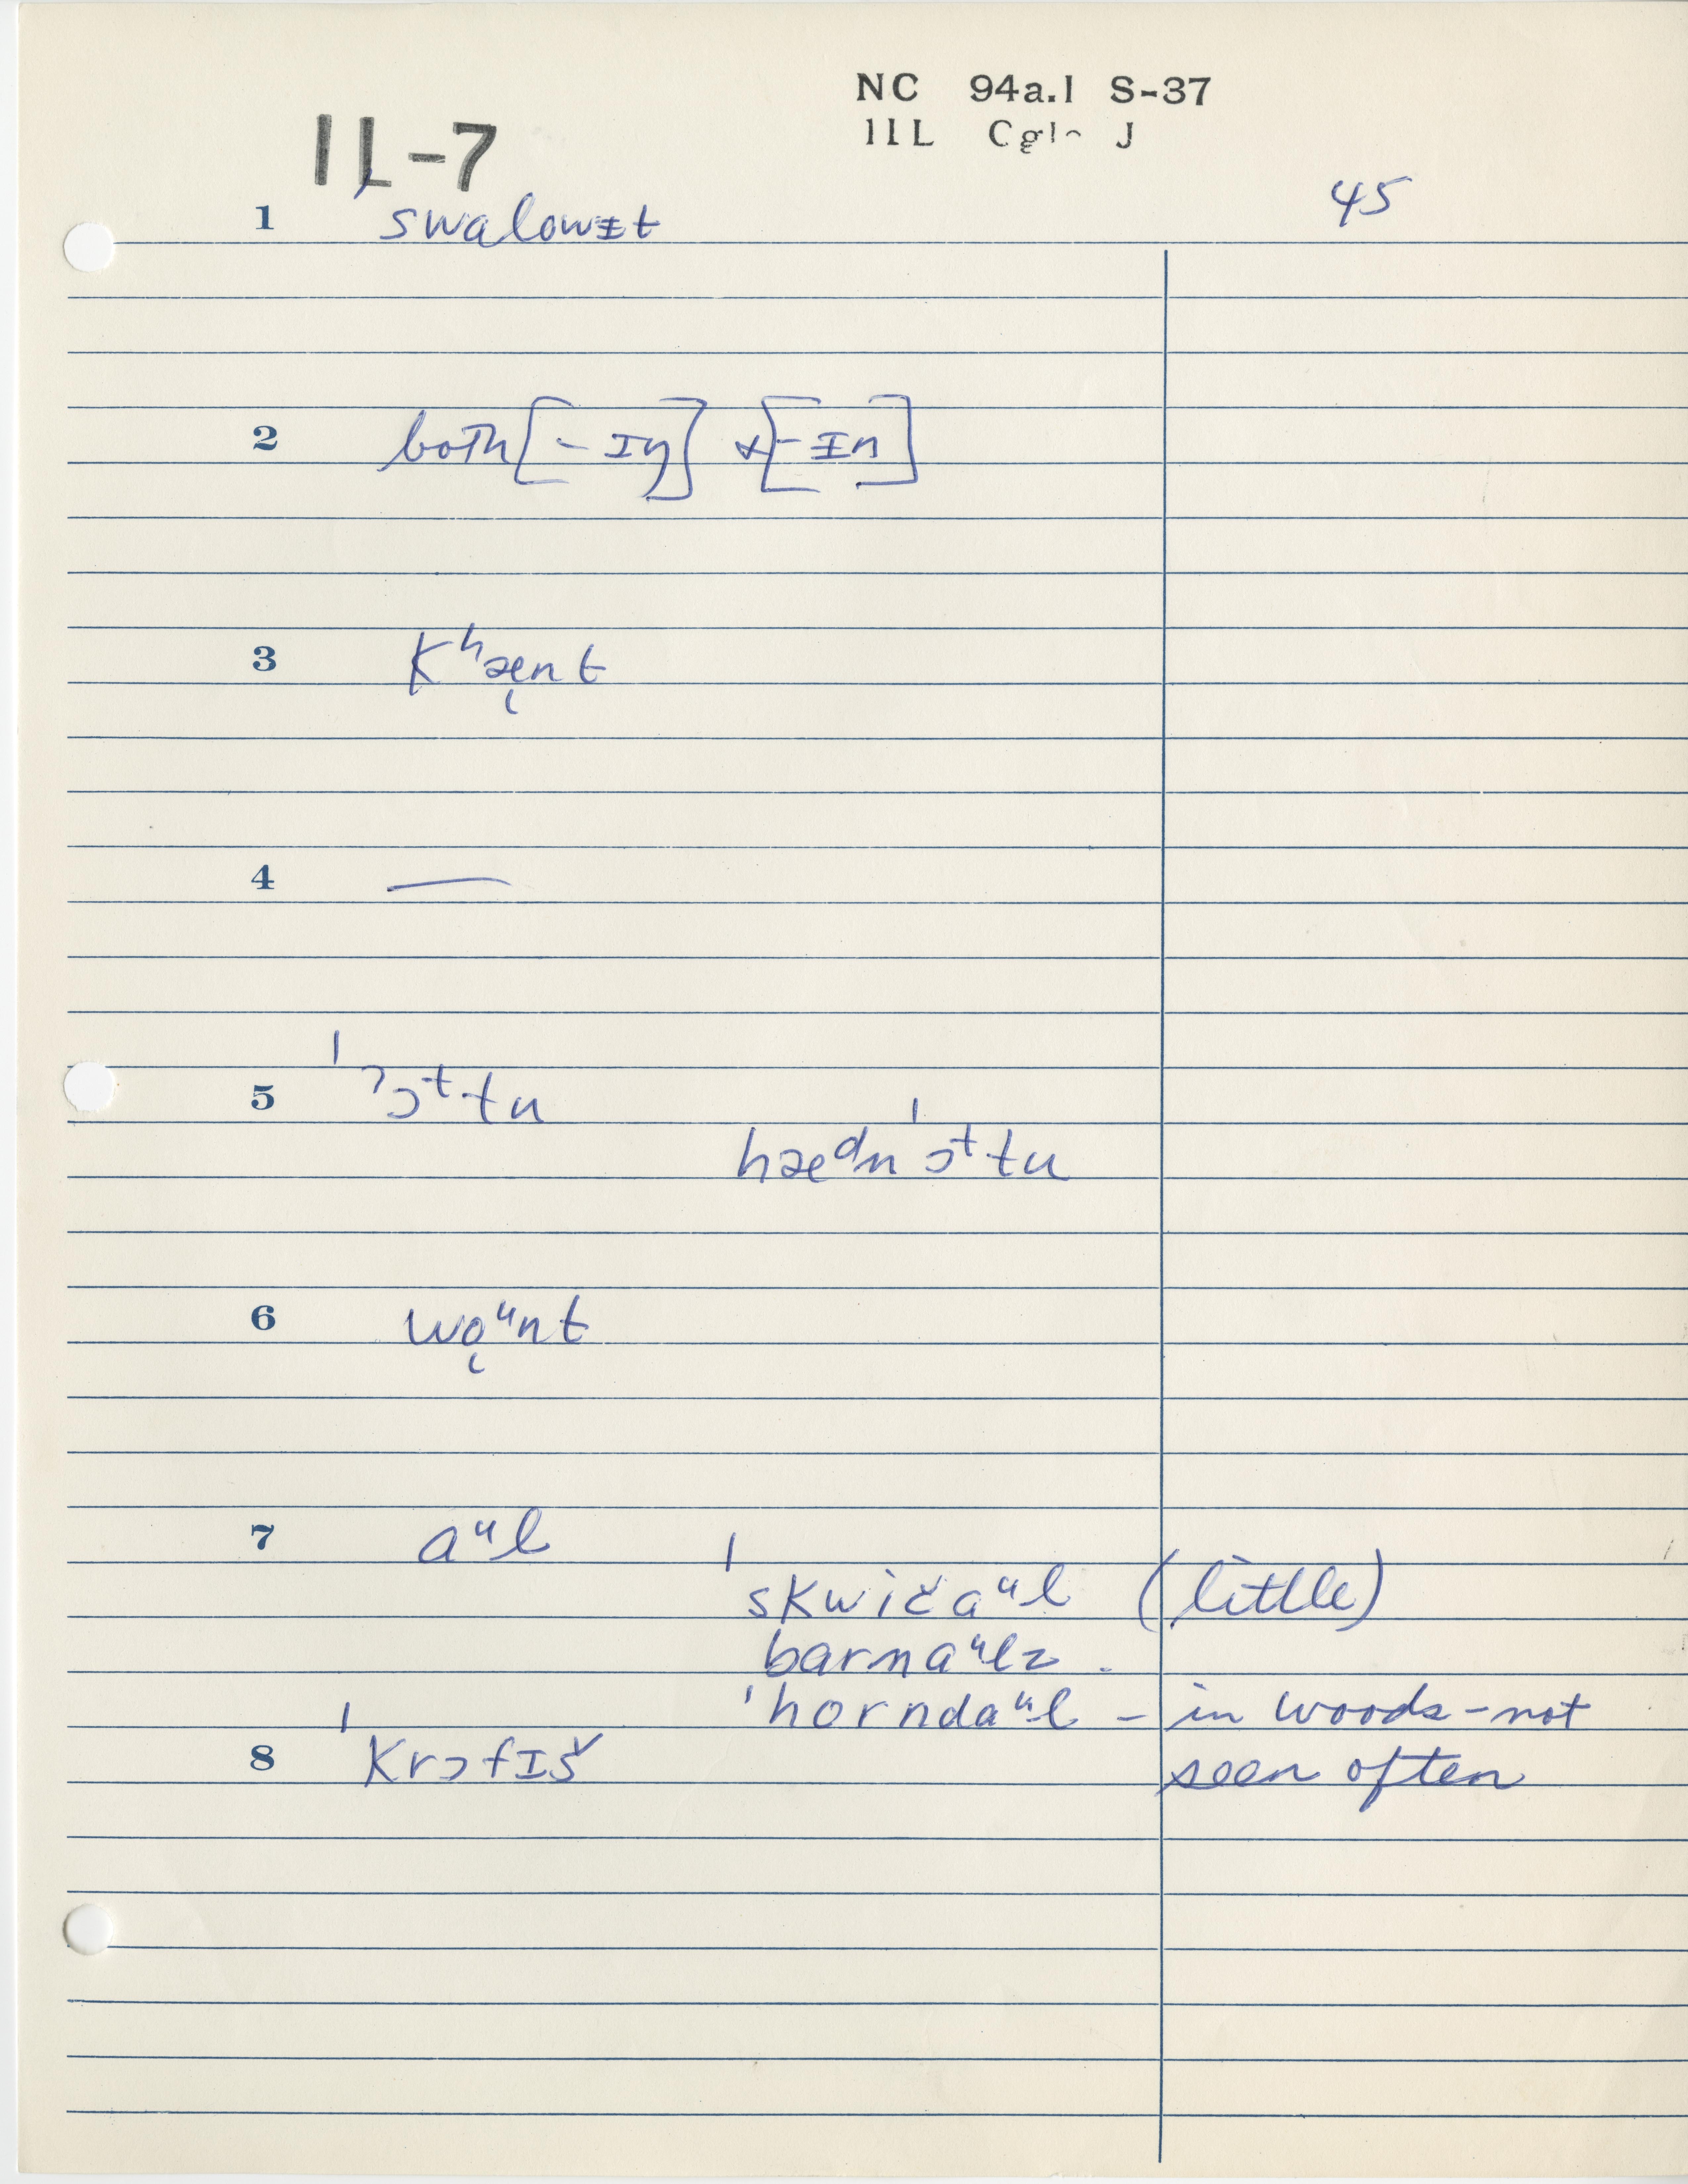 NC 94a.1 S-37
11L J
11-7
45
1 ˈswalowɨt
2 both [-ɪŋ] & [-ɨn]
3 Kʰæ̨nt
4 —
5 ˈʔɔᵗ·tu
hæᵈnˈɔᵗ·tu
6 wǫᵘnt
7 aᵘl
ˈskwičaᵘl (little)
barnaᵘlz.
ˈhorndaᵘl – in woods – not
8 ˈKrɔfɪš seen often